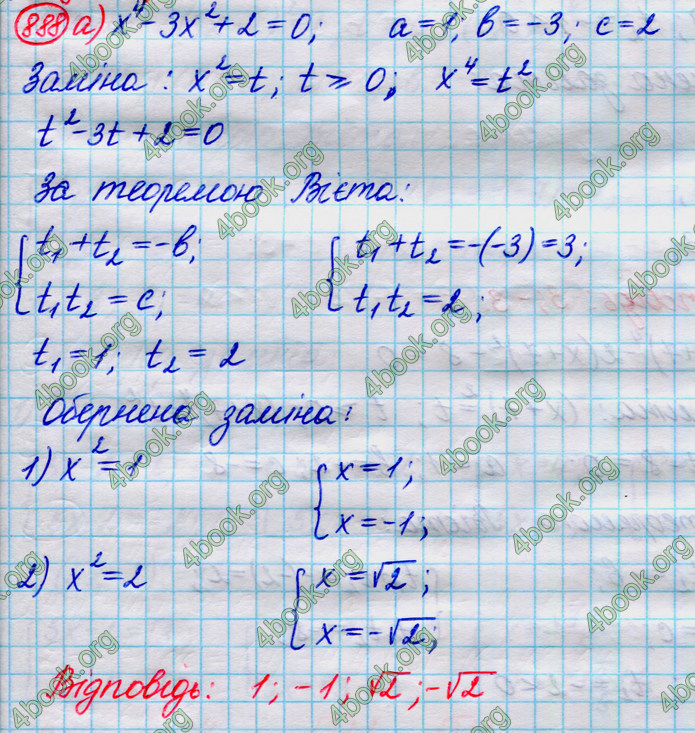 888 а) x⁴-3x²+2=0; a=1, в=-3; c=2
Заміна: x²=t; t⩾0; x⁴=t²
t²-3t+2=0
За теоремою Вієта:
{t₁+t₂=-в; {t₁+t₂=-(-3)=3;
t₁t₂=c; t₁t₂=2;
t₁=1; t₂=2
Обернена заміна:
1) x²=1 {x=1;
x=-1;
2) x²=2 {x=√2;
x=-√2;
Відповідь: 1; -1; √2; -√2
4book.org